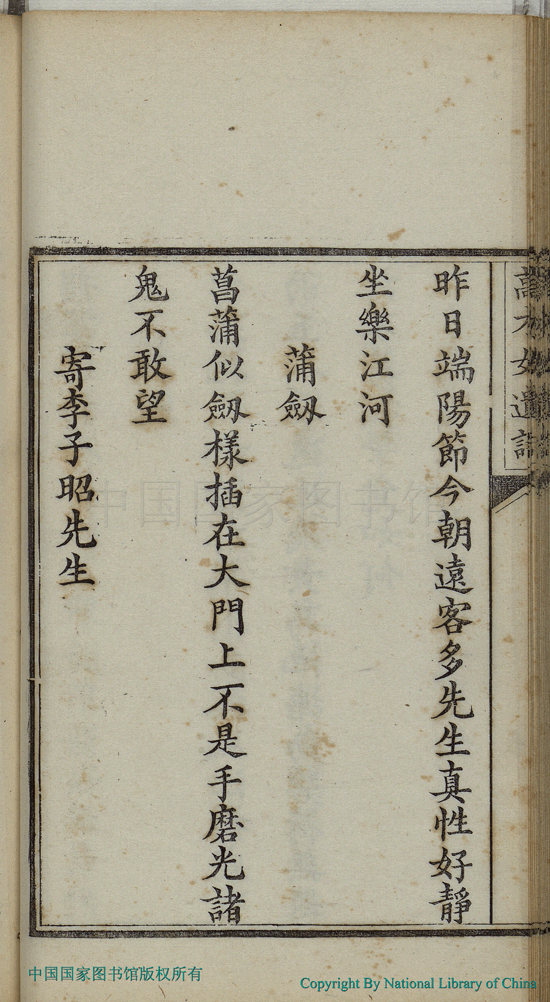 萬才女遺詩
昨日端陽節今朝遠客多先生真性好靜
坐樂江河
蒲劒
菖蒲似劒樣插在大門上不是手磨光諸
鬼不敢望
寄李子昭先生
中国国家图书馆
中国国家图书馆版权所有
Copyright By National Library of China